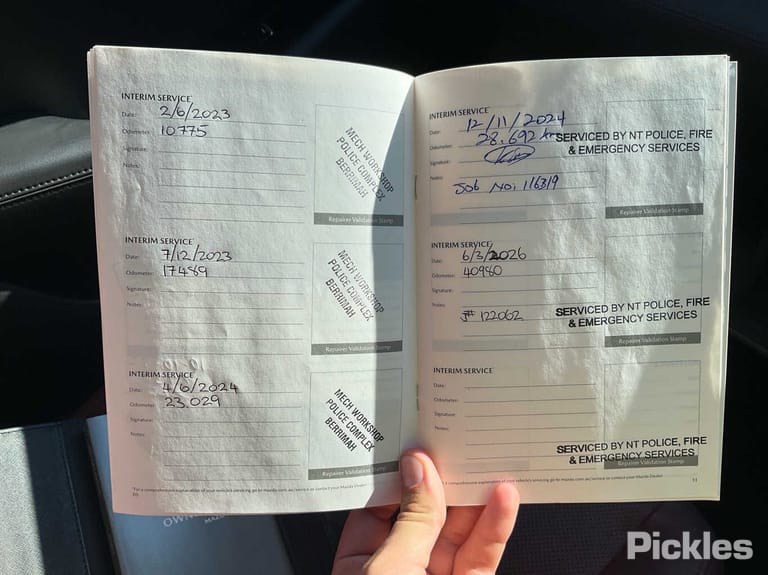 INTERIM SERVICE
Date: 2/6/2023
Odometer: 10775
Signature:
Notes:
MECH WORKSHOP
POLICE COMPLEX
BERRIMAH
Repairer Validation Stamp
INTERIM SERVICE
Date: 7/12/2023
Odometer: 17489
Signature:
Notes:
MECH WORKSHOP
POLICE COMPLEX
BERRIMAH
Repairer Validation Stamp
INTERIM SERVICE
Date: 4/6/2024
Odometer: 23.029
Signature:
Notes:
MECH WORKSHOP
POLICE COMPLEX
BERRIMAH
Repairer Validation Stamp
*For a comprehensive explanation of your vehicle's servicing go to mazda.com.au/service or contact your Mazda Dealer
10
INTERIM SERVICE
Date: 12/11/2024
Odometer: 28.692 km
Signature:
Notes:
Job No. 116319
SERVICED BY NT POLICE, FIRE
& EMERGENCY SERVICES
Repairer Validation Stamp
INTERIM SERVICE
Date: 6/3/2026
Odometer: 40980
Signature:
Notes:
J# 122062
SERVICED BY NT POLICE, FIRE
& EMERGENCY SERVICES
Repairer Validation Stamp
INTERIM SERVICE
Date:
Odometer:
Signature:
Notes:
SERVICED BY NT POLICE, FIRE
& EMERGENCY SERVICES
Repairer Validation Stamp
comprehensive explanation of your vehicle's servicing go to mazda.com.au/service or contact your Mazda Dealer
11
OWN
Pickles